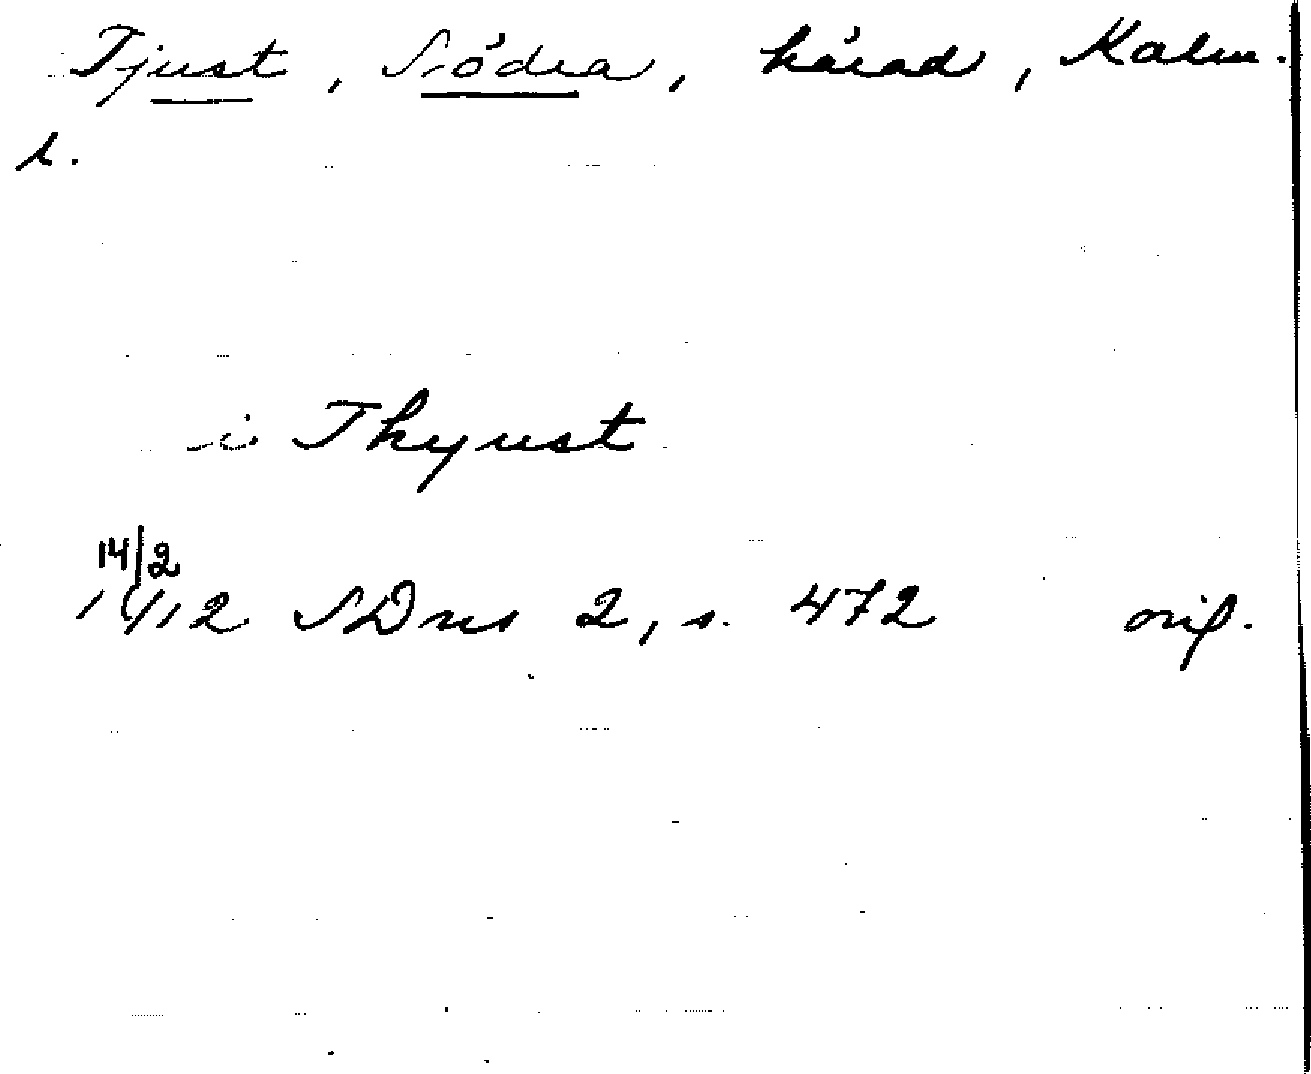 Tjust, Södra, härad, Kalm.
l.
i Thyust
14/2
1412 SDns 2, s. 472 orig.